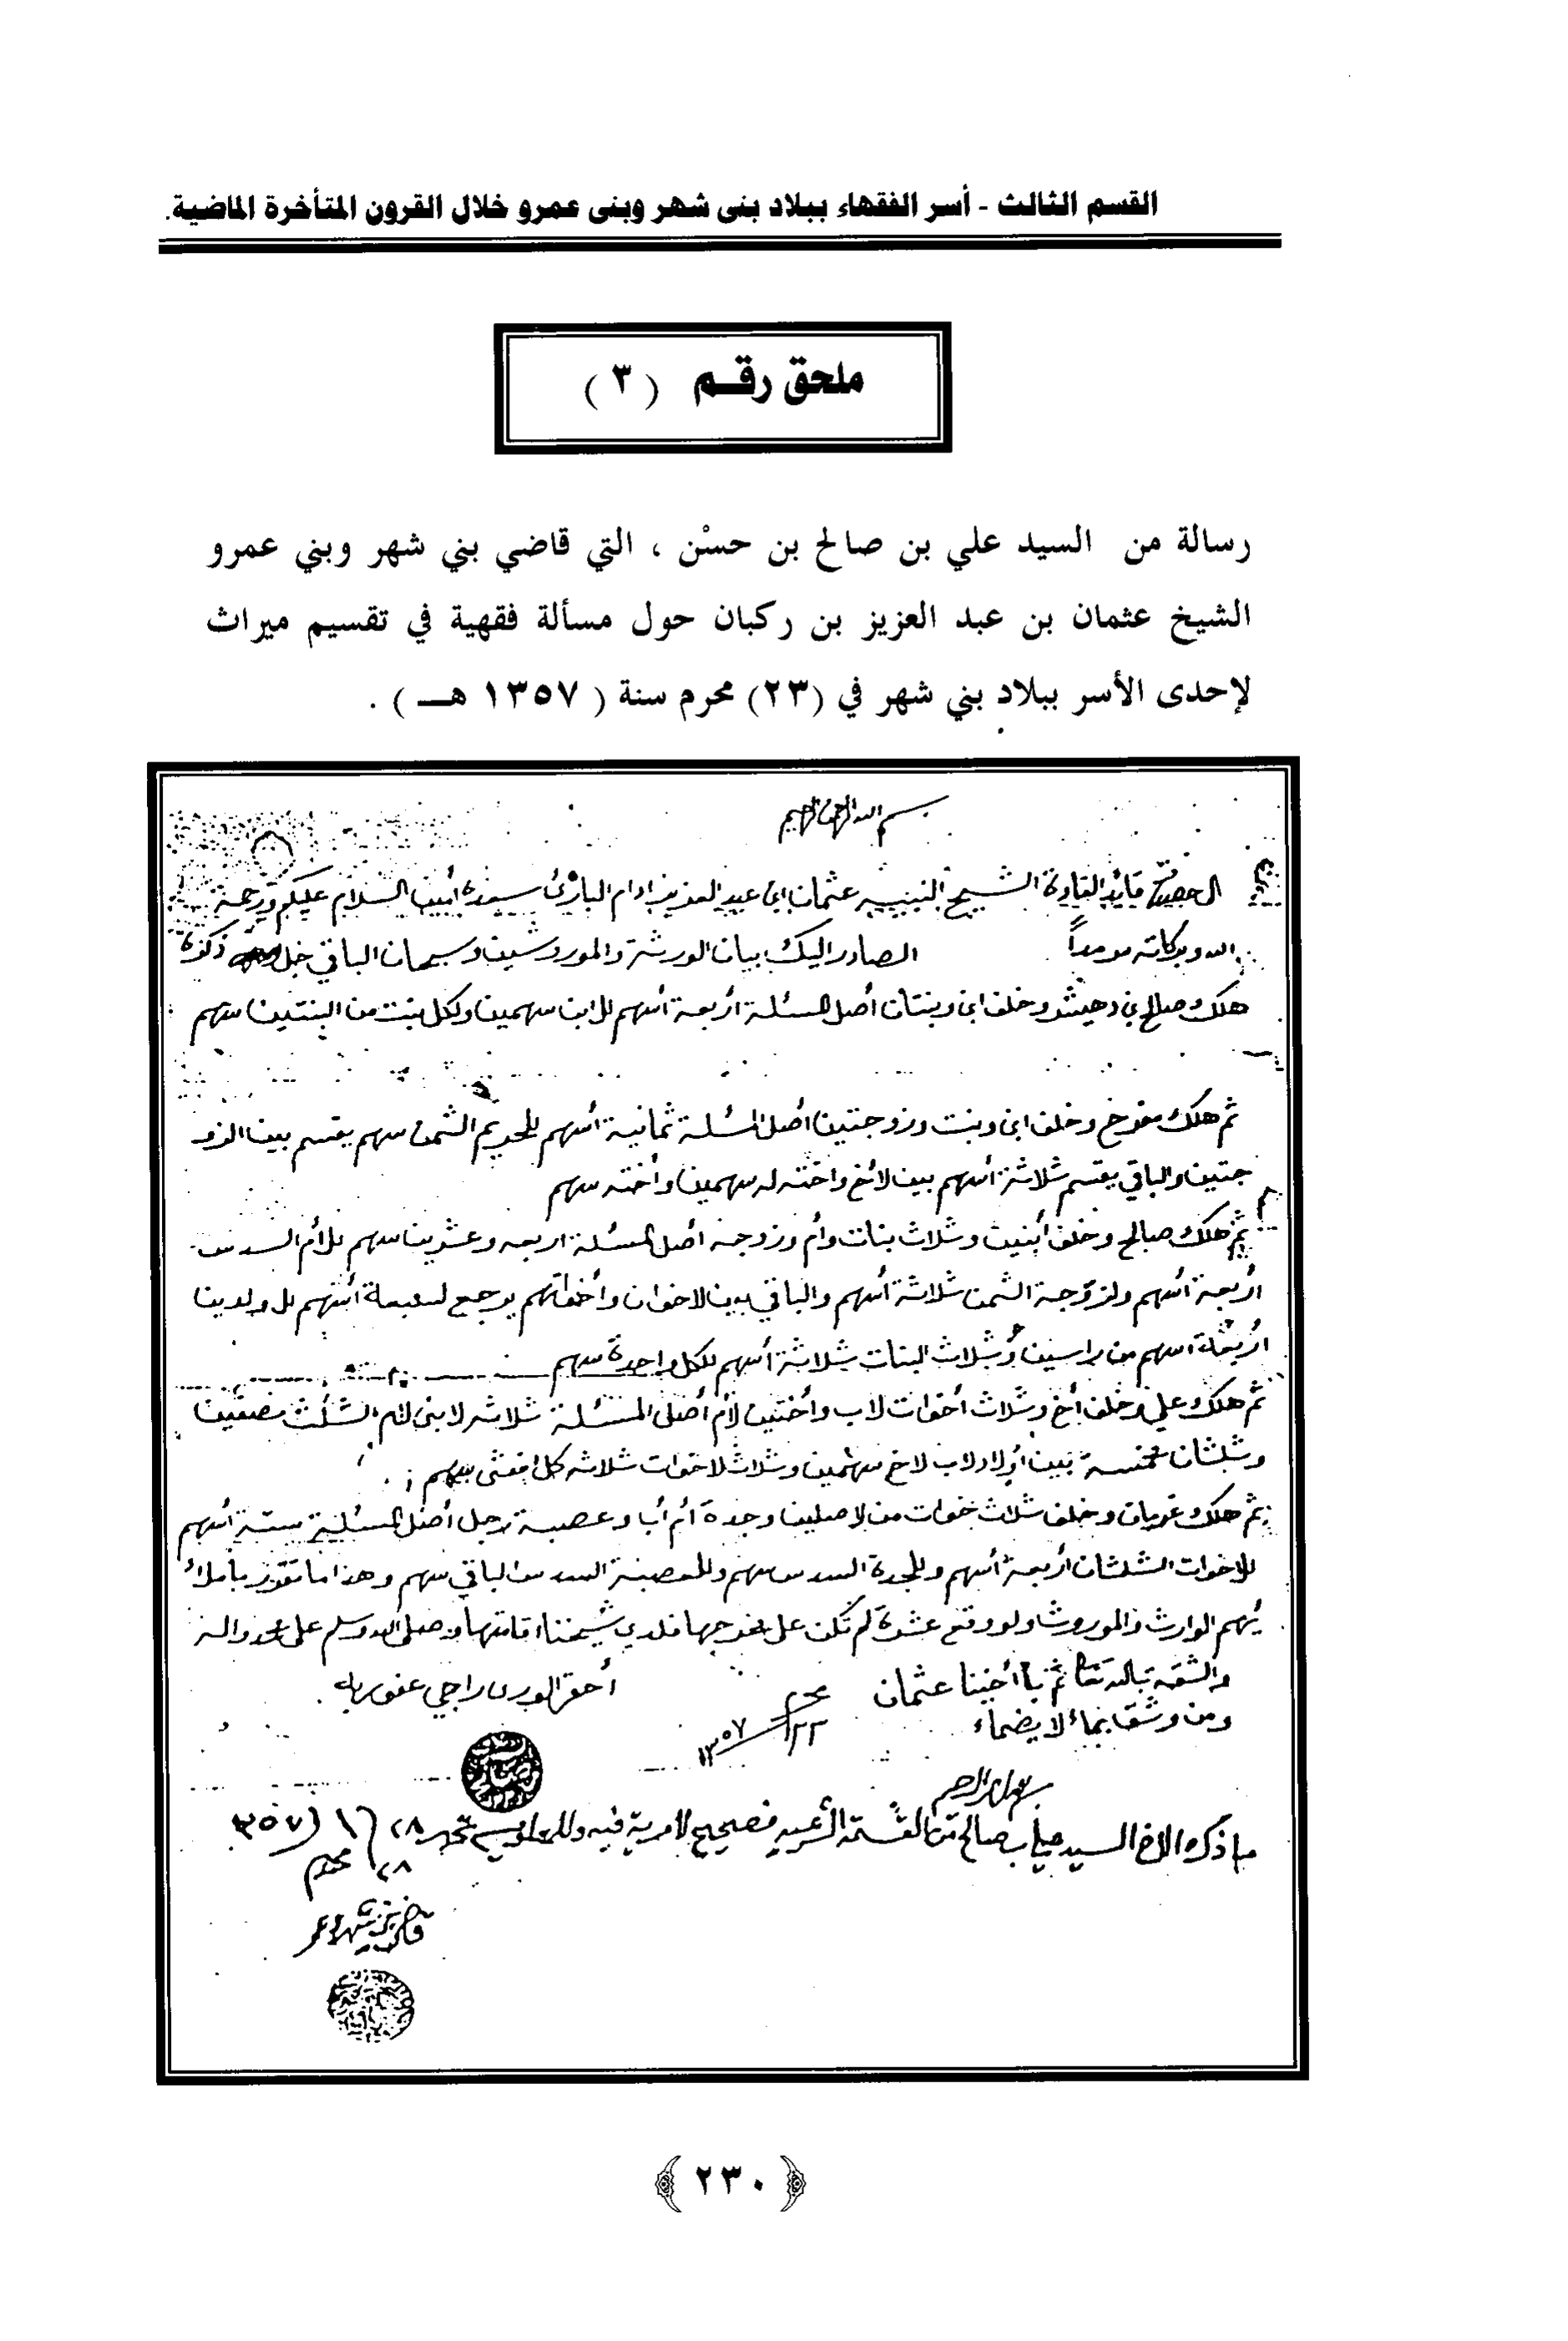 القسم الثالث - أسر الفقهاء ببلاد بنى شهر وبنى عمرو خلال القرون المتأخرة الماضية.
ملحق رقـم (٣)
رسالة من السيد علي بن صالح بن حسْن ، التي قاضي بني شهر وبني عمرو
الشيخ عثمان بن عبد العزيز بن ركبان حول مسألة فقهية في تقسيم ميراث
لإحدى الأسر ببلاد بني شهر في (٢٣) محرم سنة (١٣٥٧ هـ) .
بسم الله الرحمن الرحيم
الى حضرة قائد القادة الشيخ النبيه عثمان ابن عبد العزيز ادام الباري آمين السلام عليكم ورحمة
الله وبركاته الصادر اليك بيان الورثة والموروثين وسهمان الباقي ذكوة
هلك صالح بن دهيش وخلف ابن وبنتان أصل المسئلة أربعة أسهم للابن سهمين ولكل بنت من البنتين سهم
ثم هلك مفرح وخلف ابن وبنت وزوجتين أصل المسئلة ثمانية أسهم للحريم الثمن سهم يقسم بين الزو
جتين والباقي يقسم ثلاثة أسهم بين الأخ واخته له سهمين وأخته سهم
ثم هلك صالح وخلف أبنين وثلاث بنات وأم وزوجه أصل المسئلة اربعه وعشرين سهم للأم السدس
أربعة أسهم ولزوجة الثمن ثلاثة أسهم والباقي بين الاخوان وأخواتهم يرجع لسبعة أسهم للولدين
أربعة اسهم من راسين وثلاث البنات ثلاثة أسهم لكل واحدة سهم
ثم هلك علي وخلف أخ وثلاث أخوات لاب وأختين لأم أصل المسئلة ثلاثه لابني لام الثلث نصفين
وثلثان خمسة بين أولاد لاب لاخ سهمين وثلاث لاخوات ثلاثه كل انثى سهم
ثم هلك وخلف ثلاث خوات من لاصلين وجدة أم أب وعصبة رجل أصل المسئلة ستة أسهم
للاخوات الثلثان أربعة أسهم وللجدة السدس سهم وللعصبة السدس الباقي سهم وهذا ما تقرر
الوارث والموروث ولو وقع عشرة لم تكن على مخرجها فلدي شيخنا اقامتها وصلى الله وسلم على محمد واله
والثقه بالله ثم يا أخينا عثمان
أحقر الورى راجي عفو ربه
ومن وثق بماء لا يضماء
٢٣ ١٣٥٧
بسم الله الرحمن الرحيم
ما ذكره الاخ السيد علي بن صالح من القسمة الشرعيه فصحيح لا مرية فيه تحريره ٢٨/١/٣٥٧
٢٨ محرم
قاضي بني شهر وعمرو
﴿ ٢٣٠ ﴾